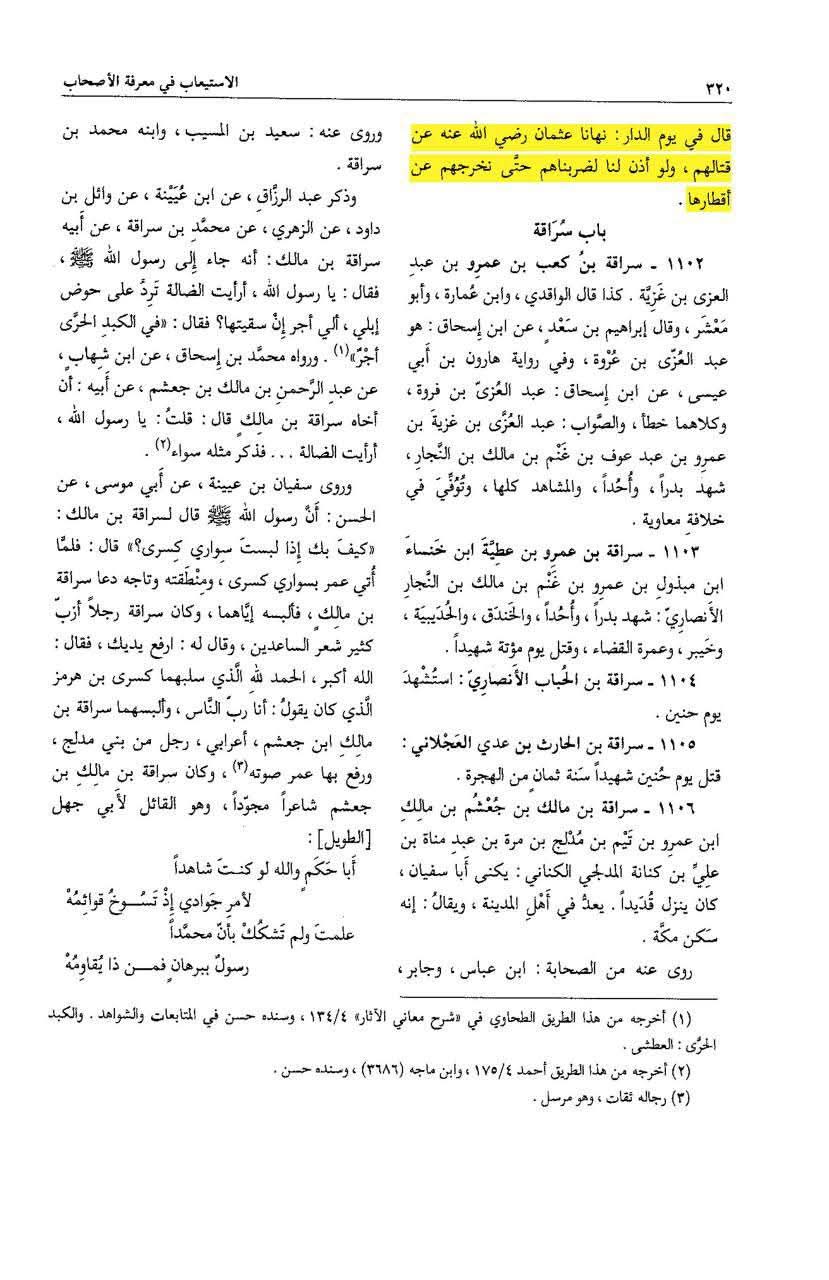 ٣٢٠
الاستيعاب في معرفة الأصحاب
قال في يوم الدار : نهانا عثمان رضي الله عنه عن
قتالهم ، ولو أذن لنا لضربناهم حتَّى نخرجهم عن
أقطارها .
باب سُرَاقة
١١٠٢ ـ سراقة بنُ كعب بن عمرو بن عبد
العزى بن غَزِيَّة . كذا قال الواقدي ، وابن عُمارة ، وأبو
مَعْشَر ، وقال إبراهيم بن سَعْد ، عن ابن إسحاق : هو
عبد العُزّى بن عُرْوة ، وفي رواية هارون بن أبي
عيسى ، عن ابن إسحاق : عبد العُزىّ بن فروة ،
وكلاهما خطأ ، والصَّواب : عبد العُزَّى بن غزيةَ بن
عمرو بن عبد عوف بن غَنْم بن مالك بن النَّجار ،
شهد بدراً ، وأُحُداً ، والمشاهد كلها ، وتُوُفِّيَ في
خلافةِ معاوية .
١١٠٣ ـ سراقة بن عمرو بن عطِيَّةَ ابن خَنساءَ
ابن مبذولِ بن عمرو بن غَنْم بن مالك بن النَّجارِ
الأنصاريّ : شهد بدراً ، وأُحُداً ، والخندق ، والحُدَيبِية ،
وخَيبر ، وعمرة القضاء ، وقتل يوم مؤتة شهيداً .
١١٠٤ ـ سراقة بن الحُباب الأنصاريّ : استُشْهدَ
يوم حنين .
١١٠٥ ـ سراقة بن الحارث بن عدي العَجْلاني :
قتل يوم حُنين شهيداً سَنة ثمانٍ من الهجرة .
١١٠٦ ـ سراقة بن مالك بن جُعْشُم بن مالك
ابن عمرو بن تَيْم بن مُدْلج بن مرة بن عبد مناة بن
عليِّ بن كنانة المدلجي الكناني : يكنى أبا سفيان ،
كان ينزل قُدَيداً . يعدُّ في أَهْلِ المدينة ، ويقالُ : إنه
سَكن مكَّة .
روى عنه من الصحابة : ابن عباس ، وجابر ،
وروى عنه : سعيد بن المسيب ، وابنه محمد بن
سراقة .
وذكر عبد الرزَّاق ، عن ابن عُيَيْنة ، عن وائل بن
داود ، عن الزهري ، عن محمَّد بن سراقة ، عن أَبيه
سراقة بن مالك : أنه جاء إِلى رسول الله ﷺ ،
فقال : يا رسول الله ، أرأيت الضالة تَرِدُّ على حوض
إبلي ، ألي أجر إِنْ سقيتها؟ فقال : «في الكبد الحَرَّى
أجْرٌ»(١) . ورواه محمَّد بن إسحاق ، عن ابن شِهاب ،
عن عبد الرَّحمن بن مالك بن جعشم ، عن أبيه : أن
أخاه سراقة بن مالكٍ قال : قلتُ : يا رسول الله ،
أرأيت الضالة ... فذكر مثله سواء(٢) .
وروى سفيان بن عيينة ، عن أَبي موسى ، عن
الحسن : أنَّ رسول الله ﷺ قال لسراقة بن مالك :
«كيفَ بك إِذا لبستَ سِواري كِسرى؟» قال : فلمَّا
أُتي عمر بسواري كسرى ، ومِنْطَقته وتاجه دعا سراقة
بن مالكٍ ، فألبسه إيَّاهما ، وكان سراقة رجلاً أزبّ
كثير شعر الساعدين ، وقال له : ارفع يديك ، فقال :
الله أكبر ، الحمد للهِ الَّذي سلبهما كسرى بن هرمز
الَّذي كان يقولُ : أنا ربّ النَّاس ، وألبسهما سراقة بن
مالكِ ابن جعشم ، أعرابي ، رجل من بني مدلج ،
ورفع بها عمر صوته(٣) ، وكان سراقة بن مالك بن
جعشم شاعراً مجوّداً ، وهو القائل لأَبي جهل
[الطويل] :
أبا حَكَمٍ والله لو كنـتَ شاهداً
لأمرِ جَوادي إِذْ تَسُــوخُ قوائِمُهْ
علمتَ ولم تَشكُكْ بأنّ محمَّداً
رسولٌ ببرهانٍ فمـــن ذا يُقاوِمُهْ
(١) أخرجه من هذا الطريق الطحاوي في «شرح معاني الآثار» ١٣٤/٤ ، وسنده حسن في المتابعات والشواهد . والكبد
الحرَّى : العطشى .
(٢) أخرجه من هذا الطريق أحمد ١٧٥/٤ ، وابن ماجه (٣٦٨٦) ، وسنده حسن .
(٣) رجاله ثقات ، وهو مرسل .